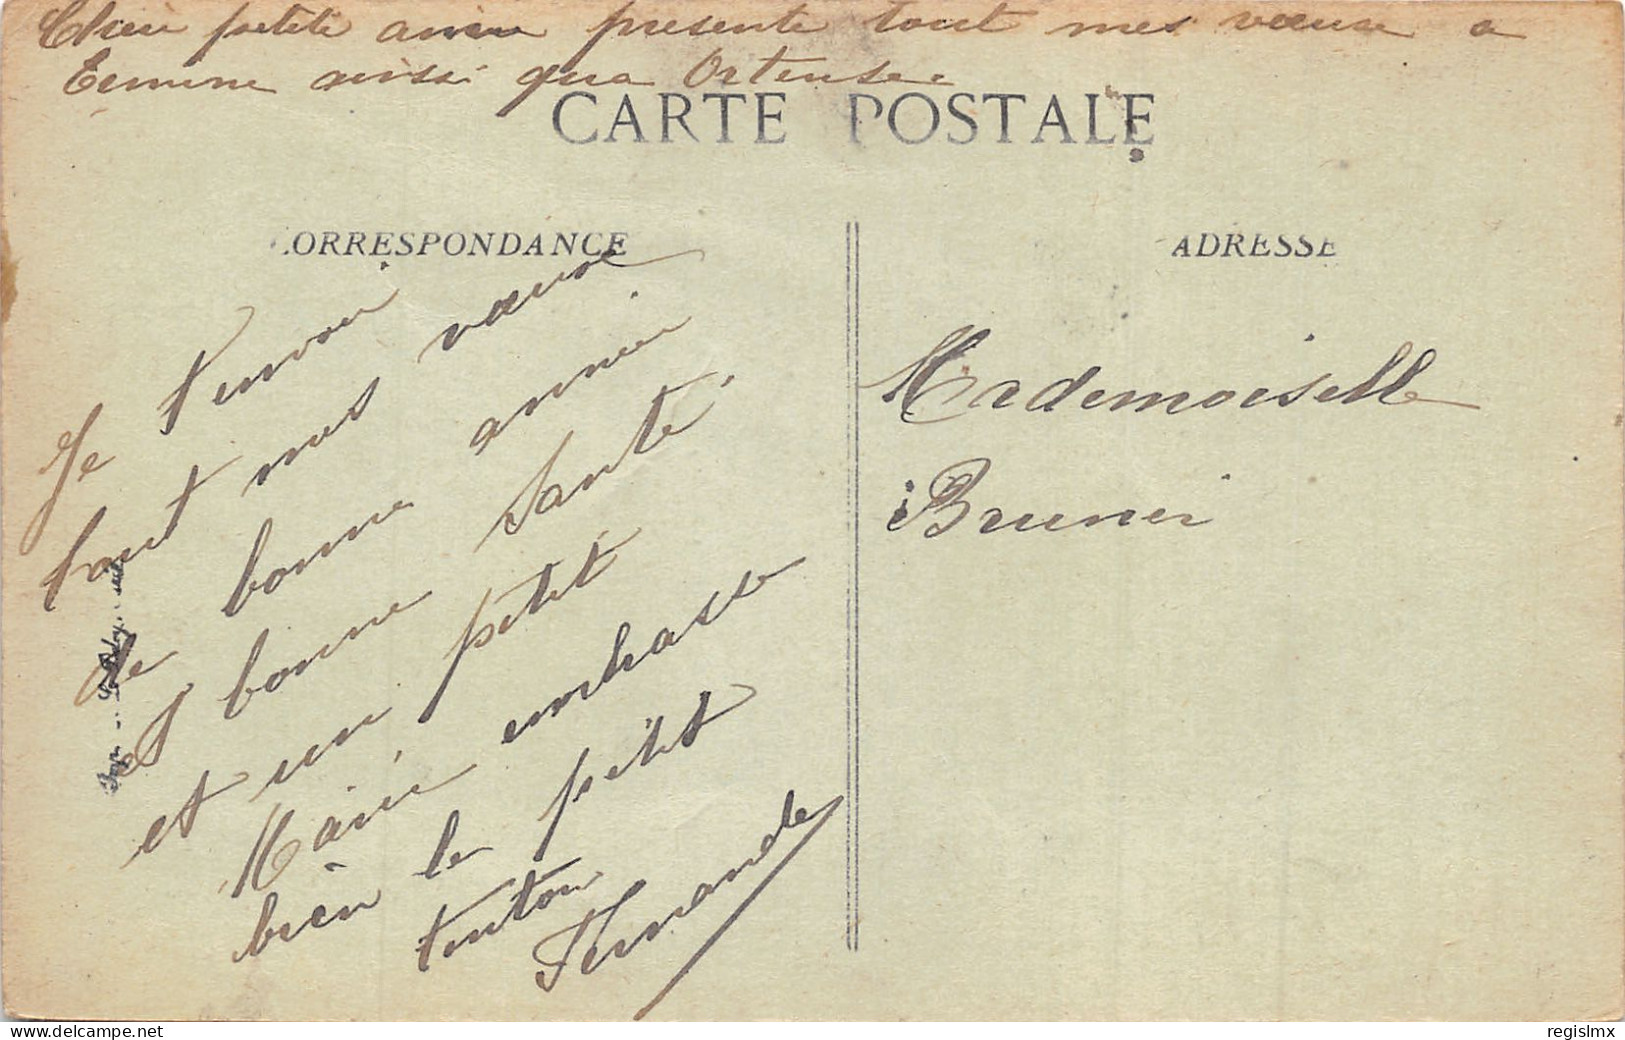 Chère petite amie présente tout mes vœuse a
Ermine ainsi qua Ortense.
CARTE POSTALE
CORRESPONDANCE
ADRESSE
Je t'envoie
tout mes vœuse
de bonne année
et bonne santé,
et un petit
Marie embrasse
bien le petit
tonton
Fernande
Mademoiselle
Brunei
delcampe.net
regislmx